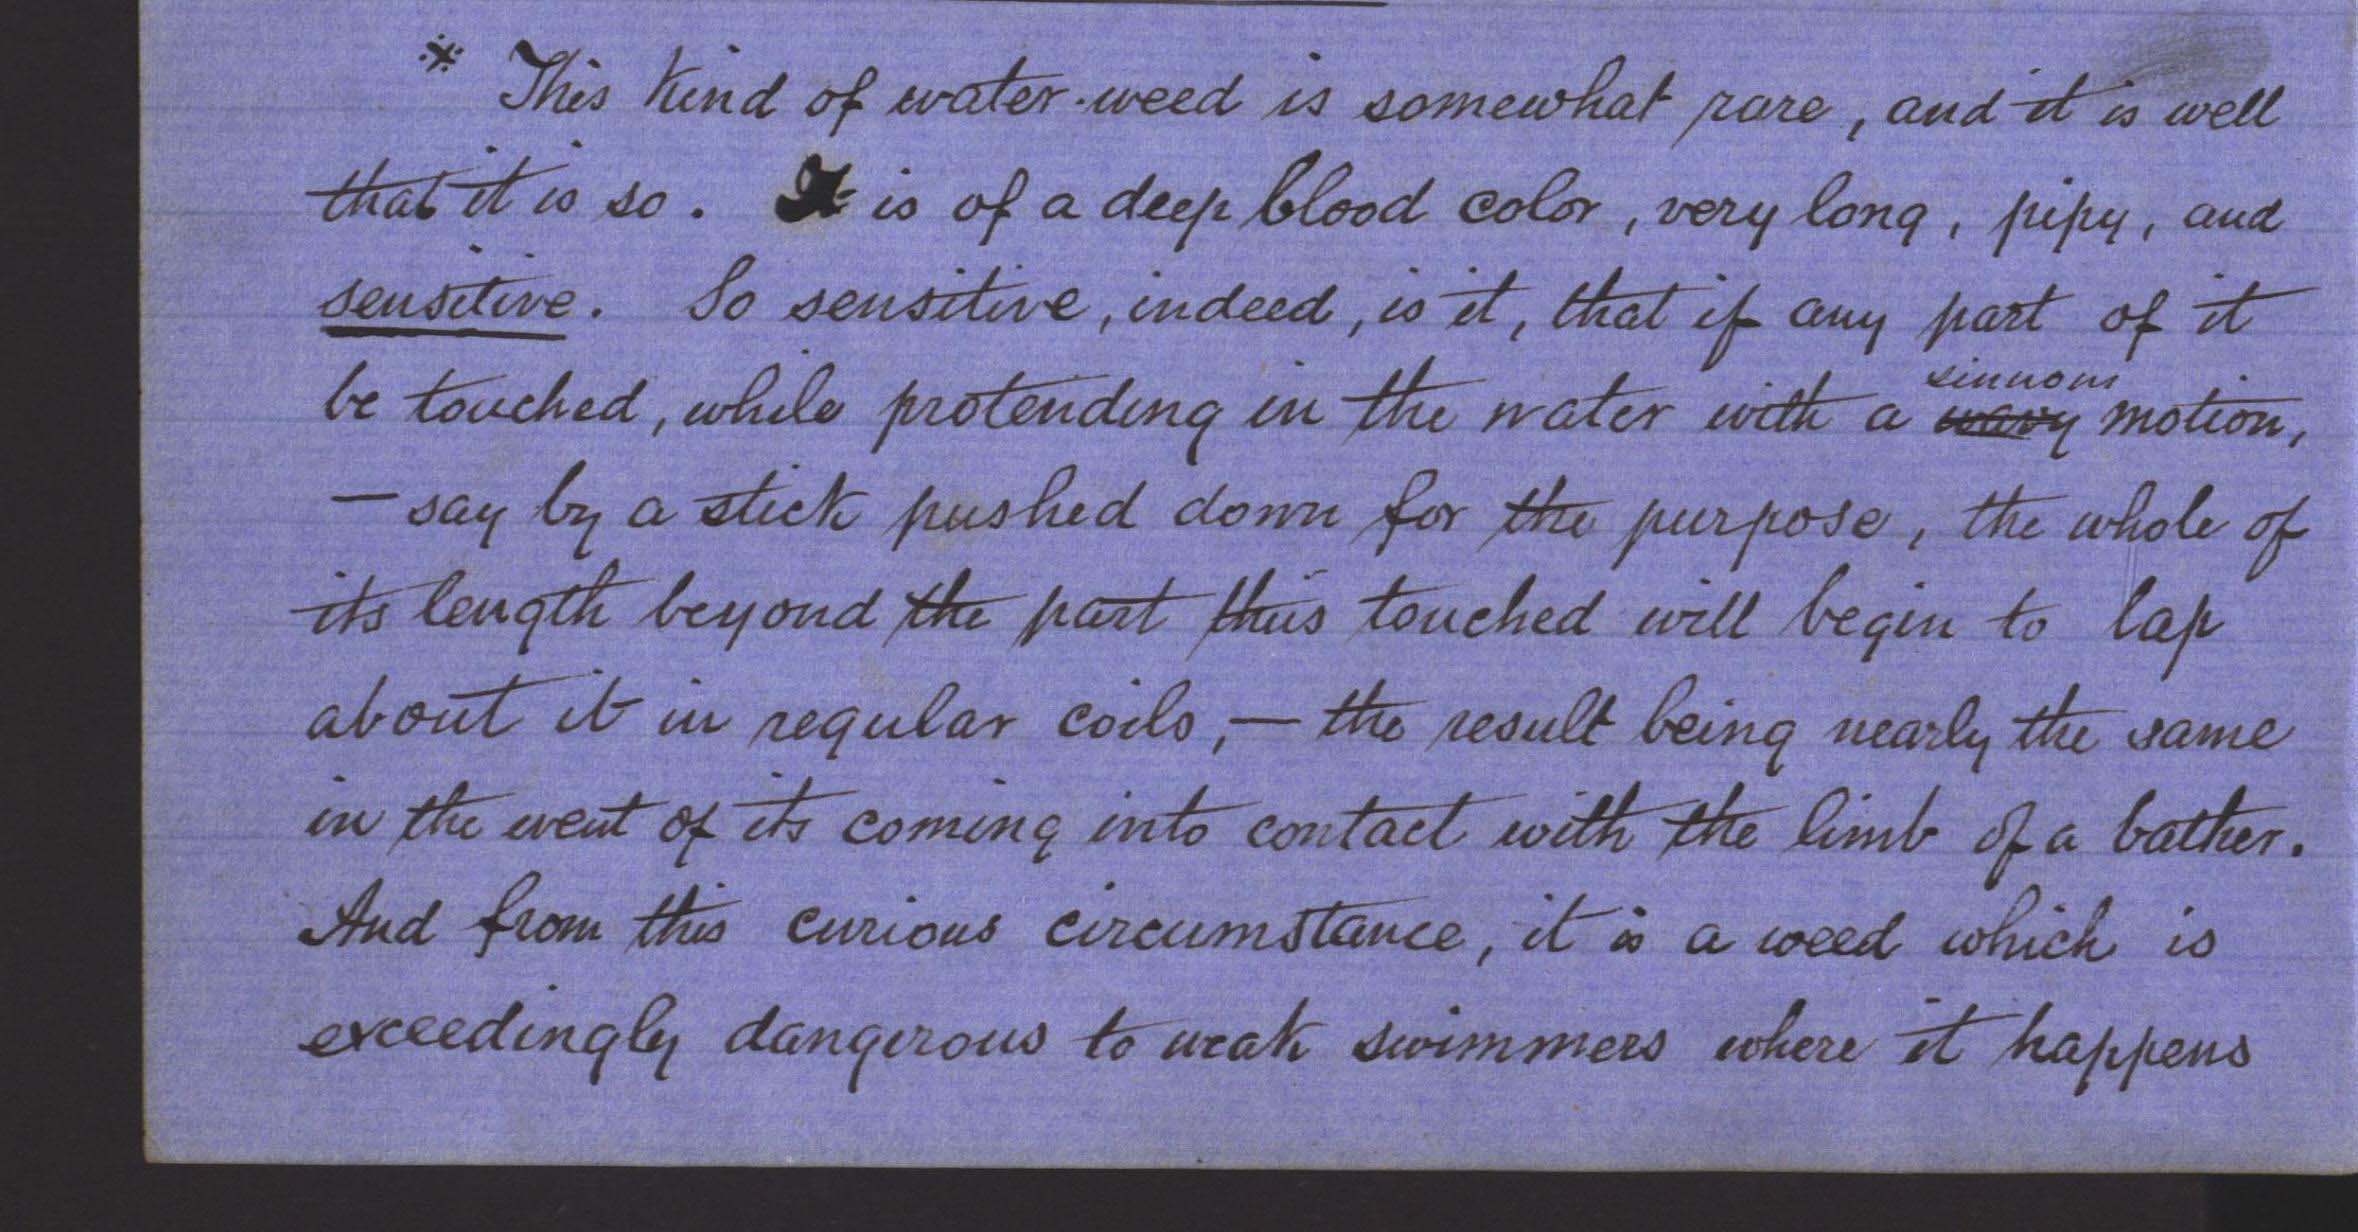 ※ This kind of water-weed is somewhat rare, and it is well
that it is so. It is of a deep blood color, very long, pipy, and
sensitive. So sensitive, indeed, is it, that if any part of it
sinuous
be touched, while protending in the water with a wavy motion,
— say by a stick pushed down for the purpose, the whole of
its length beyond the part thus touched will begin to lap
about it in regular coils, — the result being nearly the same
in the event of its coming into contact with the limb of a bather.
And from this curious circumstance, it is a weed which is
exceedingly dangerous to weak swimmers where it happens